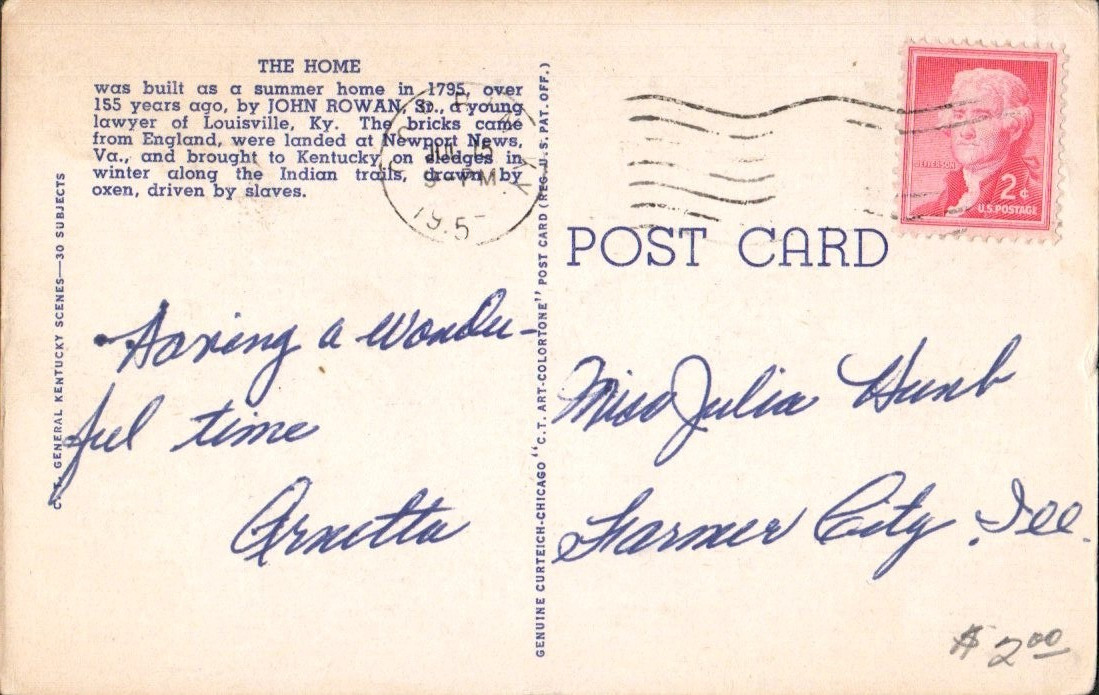 THE HOME
was built as a summer home in 1795, over
155 years ago, by JOHN ROWAN, Sr., a young
lawyer of Louisville, Ky. The bricks came
from England, were landed at Newport News,
Va., and brought to Kentucky on sledges in
winter along the Indian trails, drawn by
oxen, driven by slaves.
C.T. GENERAL KENTUCKY SCENES—30 SUBJECTS
Having a wonder-
ful time
Arnetta
GENUINE CURTEICH-CHICAGO "C.T. ART-COLORTONE" POST CARD (REG. U.S. PAT. OFF.)
JUL 15
PM
195
JEFFERSON
2¢
U.S. POSTAGE
POST CARD
Miss Julia
Farmer City, Ill.
$2.00